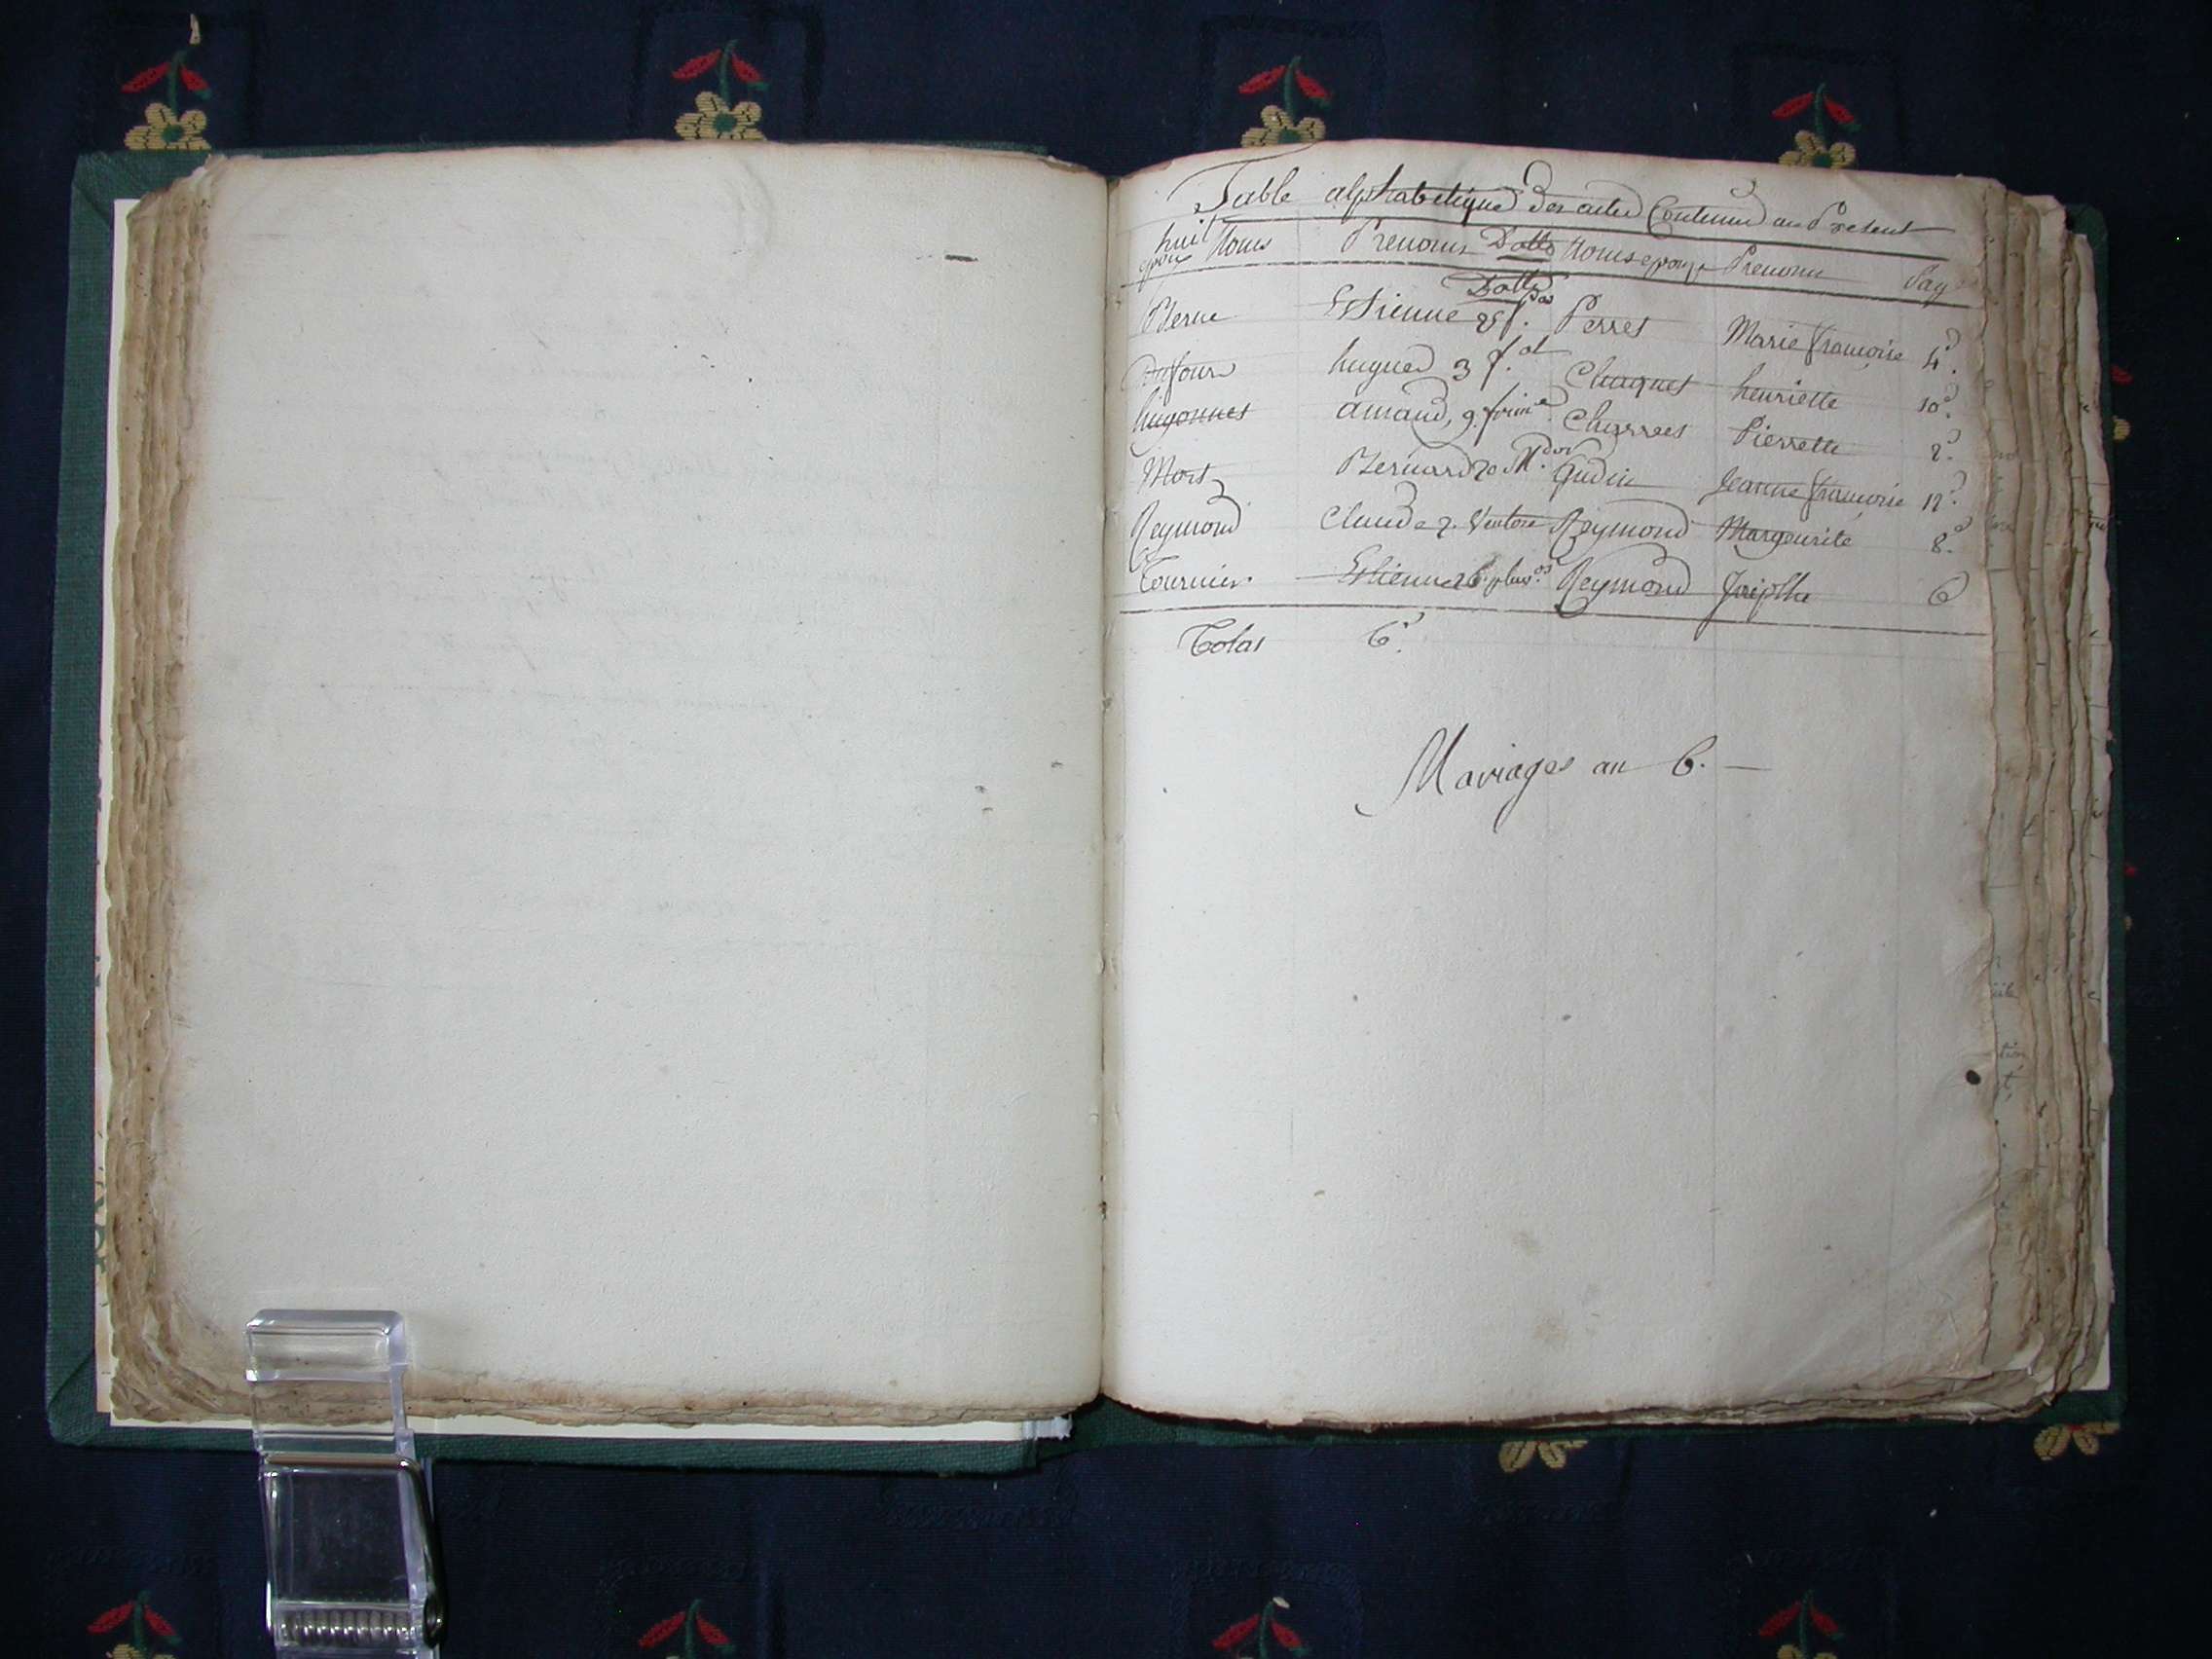 Table alphabetique des actes Contenus au Present
huit
epoux Noms Prenoms Datte Noms epouse Prenoms Pag
Datte
Berne Estienne 25 f. Perret Marie françoise 4.
Dufour hugues 3 f. Chaquet henriette 10.
hugonnet amand, 9. frim. Charret Pierrette 2.
Mort Bernard 20 M.dor Gudin Jeanne françoise 12.
Reymond Claude 7. Ventose Reymond Margeurite 8.
Tournier Estienne 26. pluv.os Reymond Josephe 6
Total 6.
Mariages an 6. —